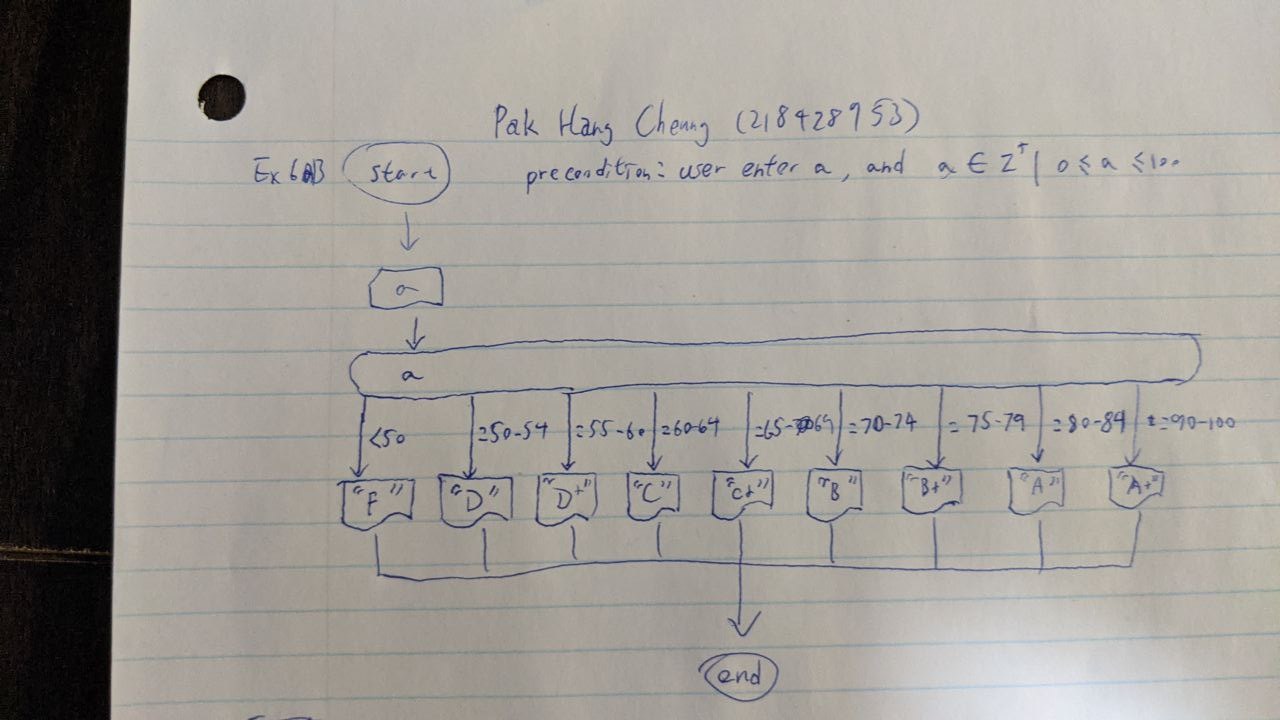 Pak Hang Cheung (218428953)
Ex 6 B start precondition: user enter a, and a ∈ Z⁺ | 0 ≤ a ≤ 100
a
a
<50 =50-54 =55-60 =60-64 =65-69 =70-74 =75-79 =80-89 =90-100
"F" "D" "D+" "C" "C+" "B" "B+" "A" "A+"
end